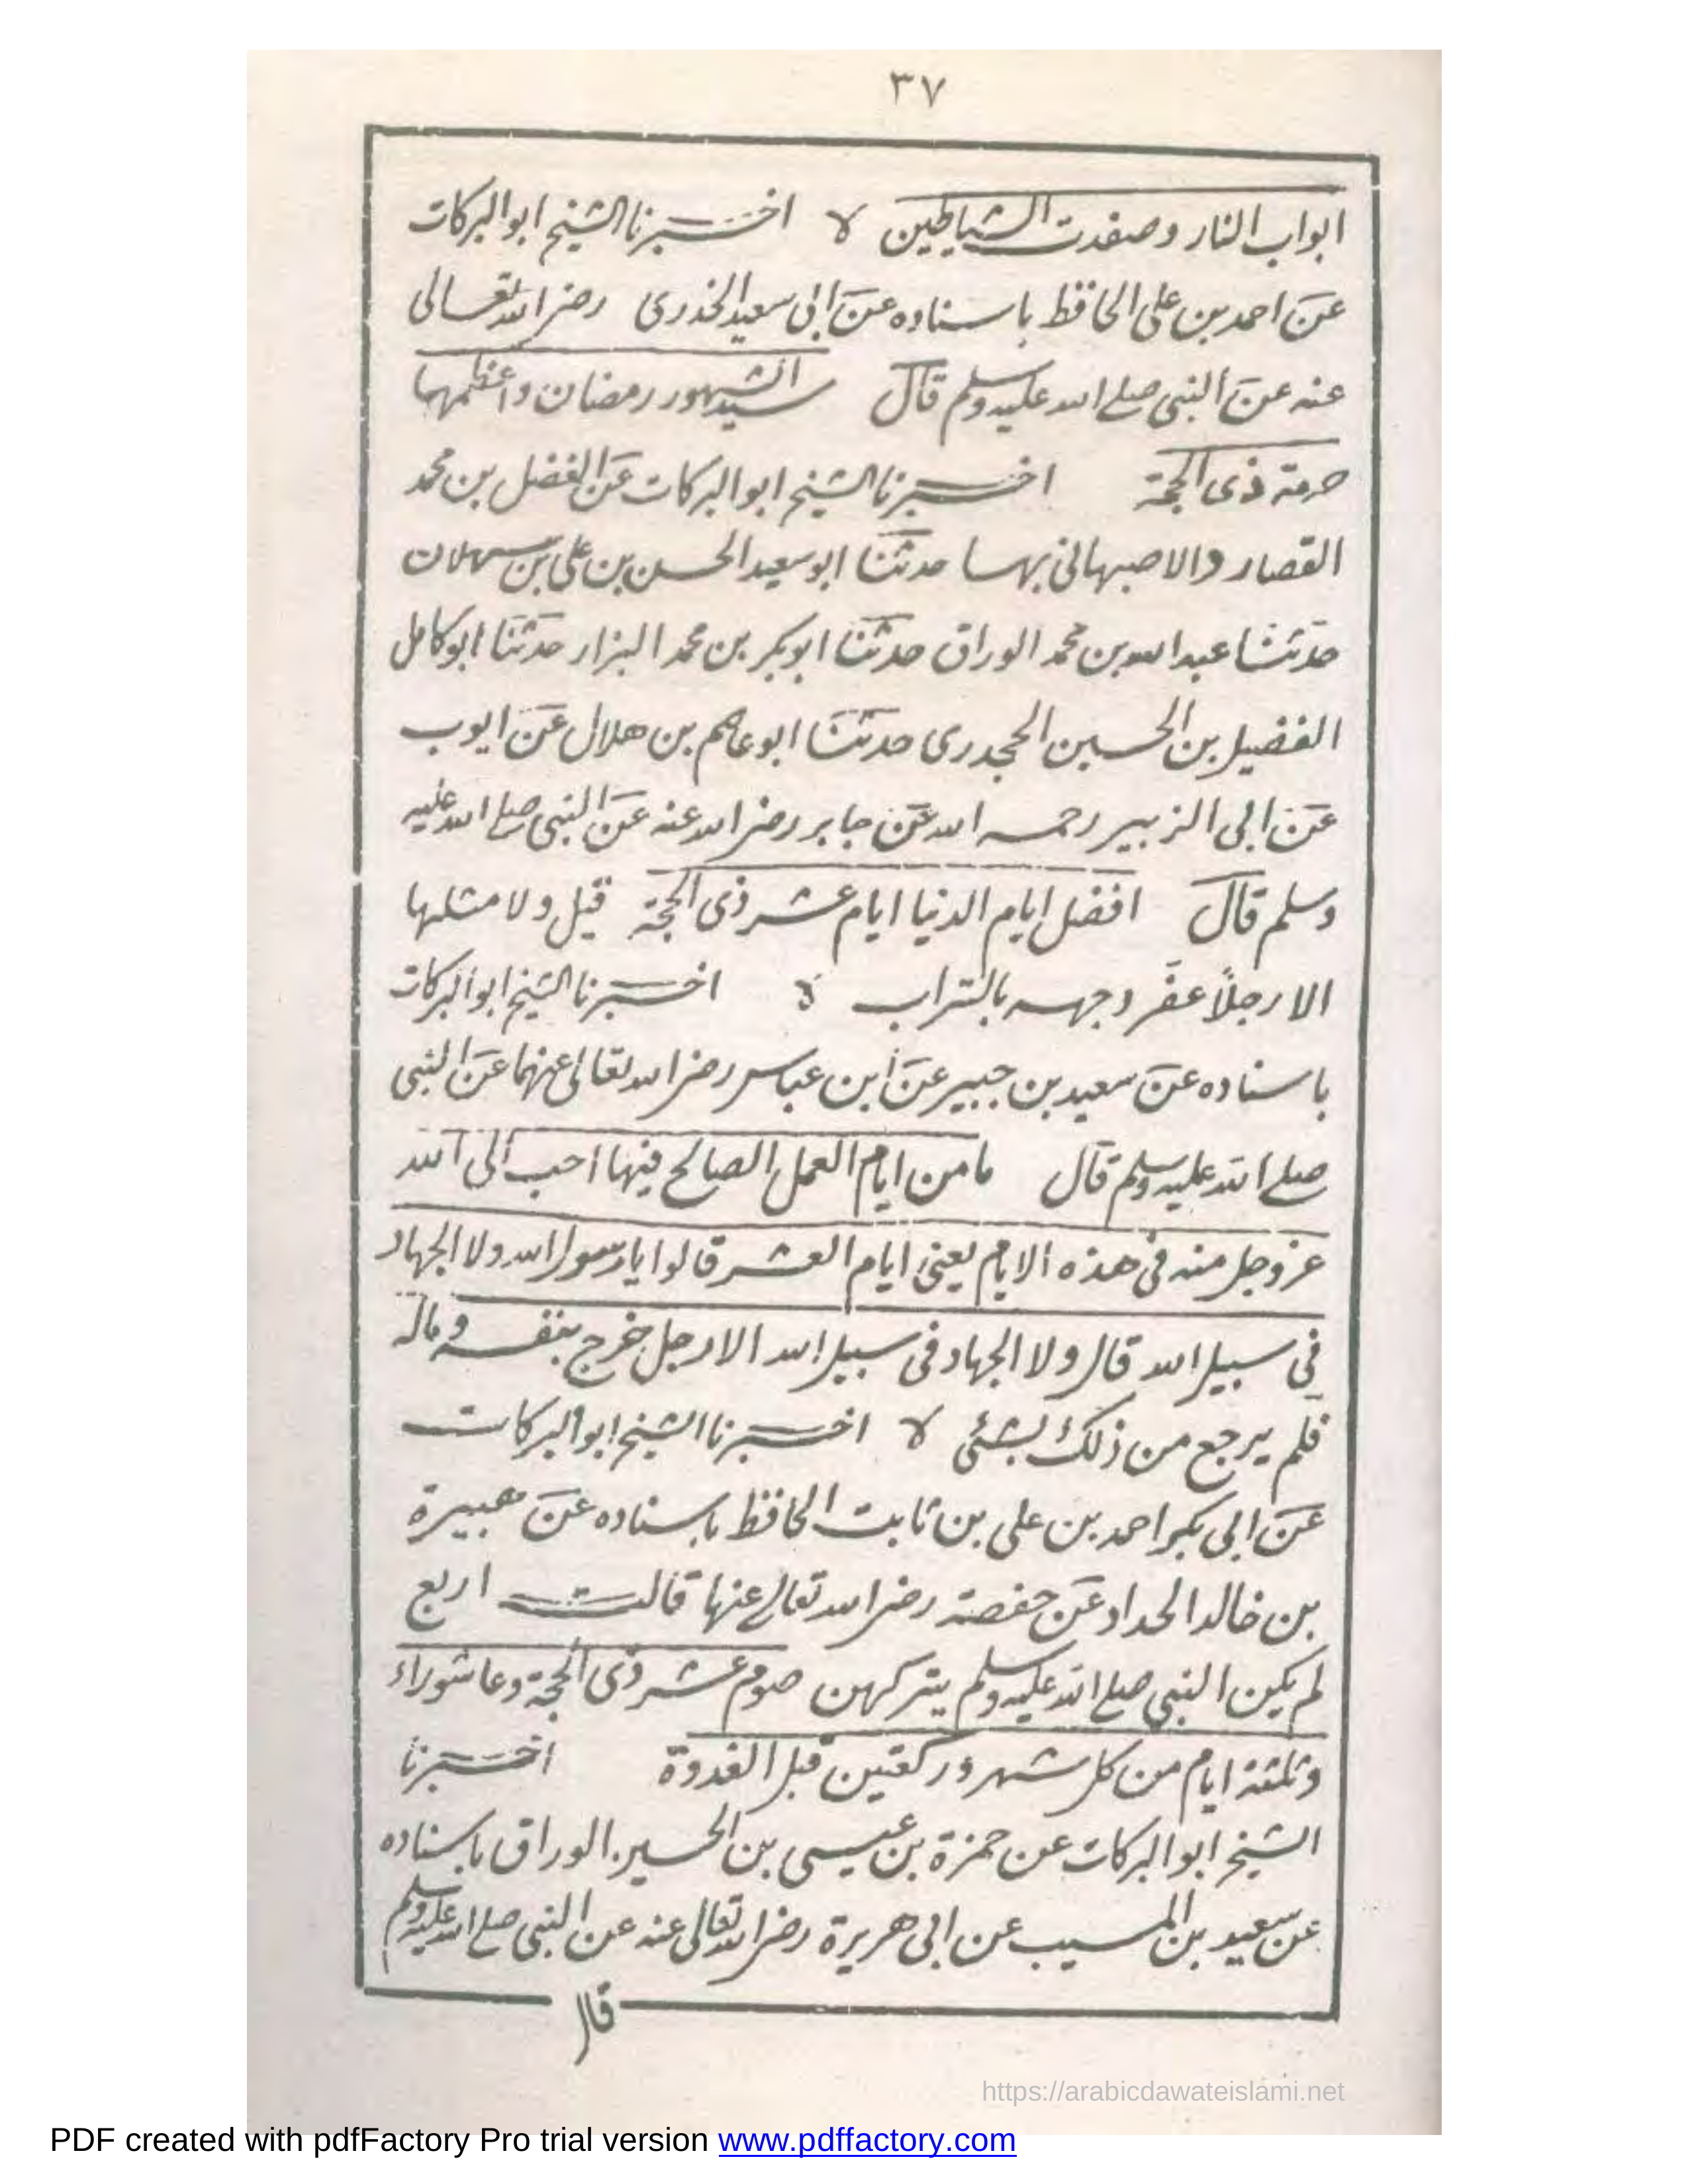 ٣٧
ابواب النار وصفدت الشياطين لا اخبرنا الشيخ ابو البركات
عن احمد بن علی الحافظ باسناده عن ابی سعيد الخدری رضی الله تعالی
عنه عن النبی صلے الله عليه وسلم قال سيد الشهور رمضان واعظمها
حرمة ذی الحجة اخبرنا الشيخ ابو البركات عن الفضل بن محمد
القصار والاصبهانی بها حدثنا ابو سعيد الحسن بن علی بن سهلان
حدثنا عبد الله بن محمد الوراق حدثنا ابو بكر بن محمد البزار حدثنا ابو كامل
الفضيل بن الحسين الحجدری حدثنا ابو عاصم بن هلال عن ايوب
عن ابی الزبير رحمه الله عن جابر رضی الله عنه عن النبی صلے الله عليه
وسلم قال افضل ايام الدنيا ايام عشر ذی الحجة قيل ولا مثلها
الا رجلاً عفّر وجهه بالتراب لا اخبرنا الشيخ ابو البركات
باسناده عن سعيد بن جبير عن ابن عباس رضی الله تعالی عنهما عن النبی
صلے الله عليه وسلم قال ما من ايام العمل الصالح فيها احب الی الله
عز وجل منه فی هذه الايام يعنی ايام العشر قالوا يا رسول الله ولا الجهاد
فی سبيل الله قال ولا الجهاد فی سبيل الله الا رجل خرج بنفسه وماله
فلم يرجع من ذلك بشئی لا اخبرنا الشيخ ابو البركات
عن ابی بكر احمد بن علی بن ثابت الحافظ باسناده عن هبيرة
بن خالد الحداد عن حفصة رضی الله تعالی عنها قالت اربع
لم يكن النبی صلے الله عليه وسلم يتركهن صوم عشر ذی الحجة وعاشوراء
وثلثة ايام من كل شهر وركعتين قبل الغدوة اخبرنا
الشيخ ابو البركات عن حمزة بن عيسی بن الحسين الوراق باسناده
عن سعيد بن المسيب عن ابی هريرة رضی الله تعالی عنه عن النبی صلے الله عليه وسلم
قال
https://arabicdawateislami.net
PDF created with pdfFactory Pro trial version www.pdffactory.com